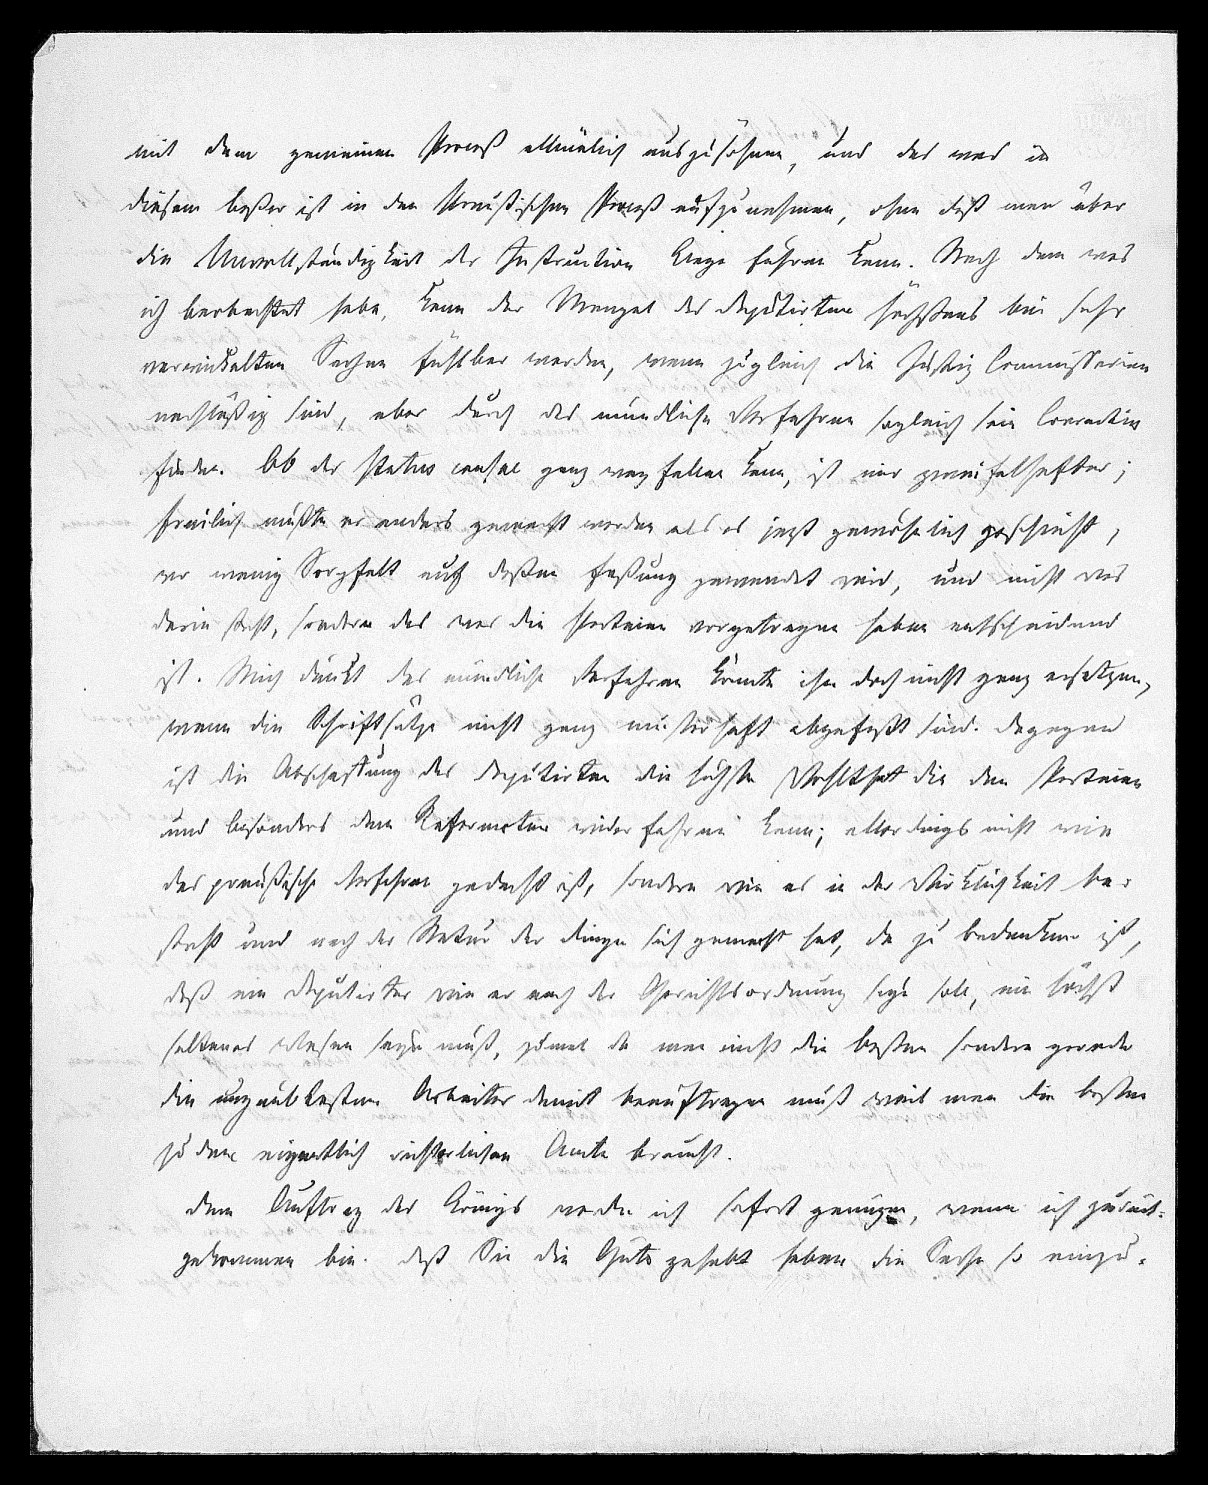 mit dem gemeinen Proceß allmälich auszusöhnen, und das was in
diesem beßer ist in den Preußischen Proceß aufzunehmen, ohne daß man über
die Unvollständigkeit der Instruction Klage führen kann. Nach dem was
ich beobachtet habe, kann der Mangel des Deputirten höchstens bei sehr
verwickelten Sachen fühlbar werden, wenn zugleich die Justiz Commissarien
nachläßig sind, aber durch das mündliche Verfahren sogleich sein Correctiv
finden. Ob der status causae ganz wegfallen kann, ist mir zweifelhafter;
freilich müßte er anders gemacht werden als es jezt gewöhnlich geschieht,
wo wenig Sorgfalt auf deßen Faßung gewendet wird, und nicht was
darin steht, sondern das was die Parteien vorgetragen haben entscheidend
ist. Mich dünkt das mündliche Verfahren könnte ihn doch nicht ganz ersetzen,
wenn die Schriftsätze nicht ganz musterhaft abgefaßt sind. Dagegen
ist die Abschaffung des Deputirten die höchste Wohlthat die den Parteien
und besonders dem Referenten widerfahren kann; allerdings nicht wie
das preußische Verfahren gedacht ist, sondern wie es in der Wirklichkeit be-
steht und nach der Natur der Dinge sich gemacht hat, da zu bedenken ist,
daß ein Deputirter wie er nach der Gerichtsordnung seyn soll, ein höchst
seltenes Wesen seyn muß, zumal da man nicht die besten sondern gerade
die ungeübtesten Arbeiter damit beauftragen muß weil man die besten
zu dem eigentlich richterlichen Amte braucht.
Dem Auftrag des Königs werde ich sofort genügen, wenn ich zurück-
gekommen bin. Daß Sie die Güte gehabt haben die Sache so einzu-